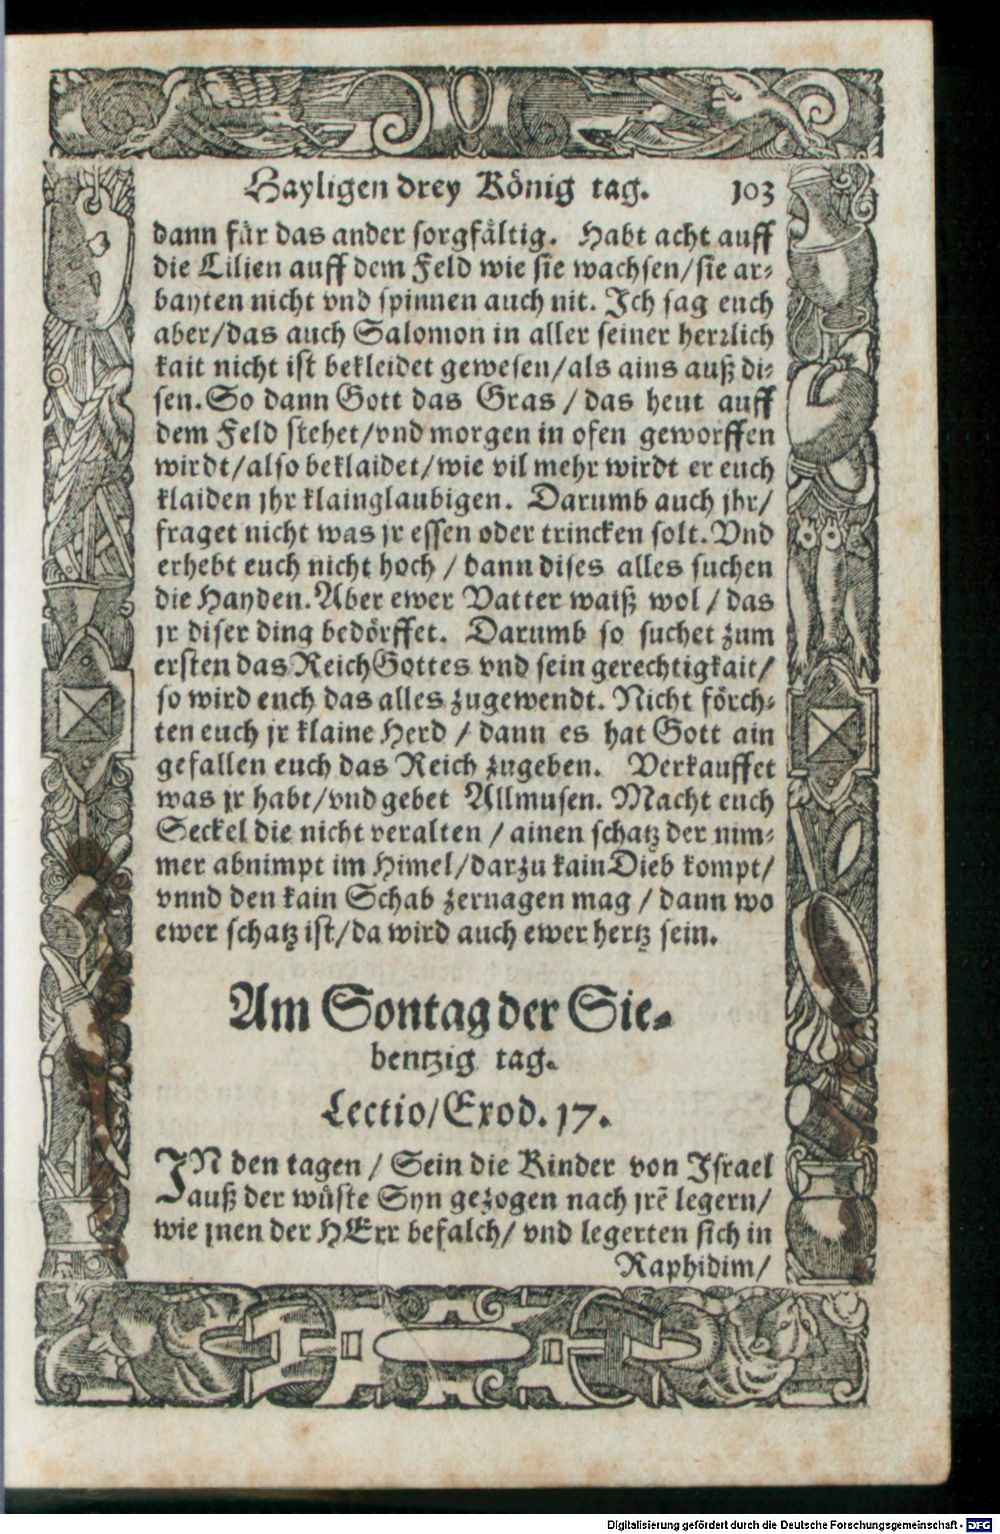 Hayligen drey König tag. 103
dann für das ander sorgfältig. Habt acht auff
die Lilien auff dem Feld wie sie wachsen/sie ar-
bayten nicht vnd spinnen auch nit. Ich sag euch
aber/das auch Salomon in aller seiner herrlich
kait nicht ist bekleidet gewesen/als ains auß di-
sen. So dann Gott das Gras/das heut auff
dem Feld stehet/vnd morgen in ofen geworffen
wirdt/also beklaidet/wie vil mehr wirdt er euch
klaiden jhr klainglaubigen. Darumb auch jhr/
fraget nicht was jr essen oder trincken solt. Vnd
erhebt euch nicht hoch/dann dises alles suchen
die Hayden. Aber ewer Vatter waiß wol/das
jr diser ding bedörffet. Darumb so suchet zum
ersten das Reich Gottes vnd sein gerechtigkait/
so wird euch das alles zugewendt. Nicht förch-
ten euch jr klaine Herd/dann es hat Gott ain
gefallen euch das Reich zugeben. Verkauffet
was jr habt/vnd gebet Allmusen. Macht euch
Seckel die nicht veralten/ainen schatz der nim-
mer abnimpt im Himel/darzu kain Dieb kompt/
vnnd den kain Schab zernagen mag/dann wo
ewer schatz ist/da wird auch ewer hertz sein.
Am Sontag der Sie-
bentzig tag.
Lectio/Exod. 17.
IN den tagen/Sein die Kinder von Israel
auß der wüste Syn gezogen nach jrē legern/
wie jnen der HErr befalch/vnd legerten sich in
Raphidim/
Digitalisierung gefördert durch die Deutsche Forschungsgemeinschaft - DFG